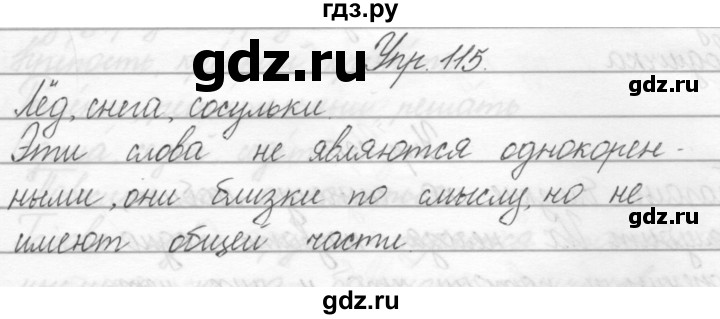 гдз.ру
Упр. 115.
gdz.ru
gdz.ru
Лёд, снега, сосульки.
Эти слова не являются однокорен-
gdz.ru
gdz.ru
ными, они близки по смыслу, но не
gdz.ru
имеют общей части.
gdz.ru